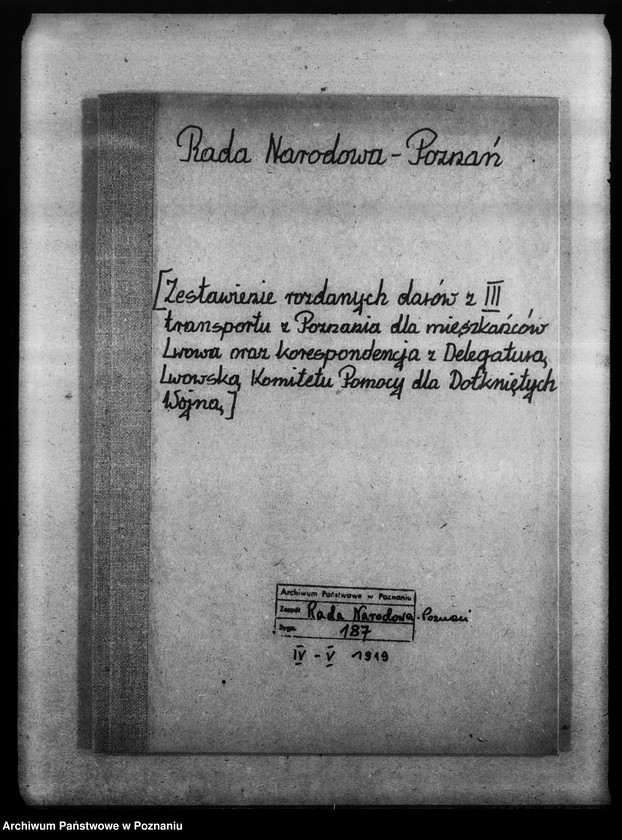 Rada Narodowa - Poznań
[Zestawienie rozdanych darów z III
transportu z Poznania dla mieszkańców
Lwowa oraz korespondencja z Delegaturą
Lwowską Komitetu Pomocy dla Dotkniętych
Wojną]
Archiwum Państwowe w Poznaniu
Zespół Rada Narodowa - Poznań
Sygn. 187
IV - V 1919
Archiwum Państwowe w Poznaniu